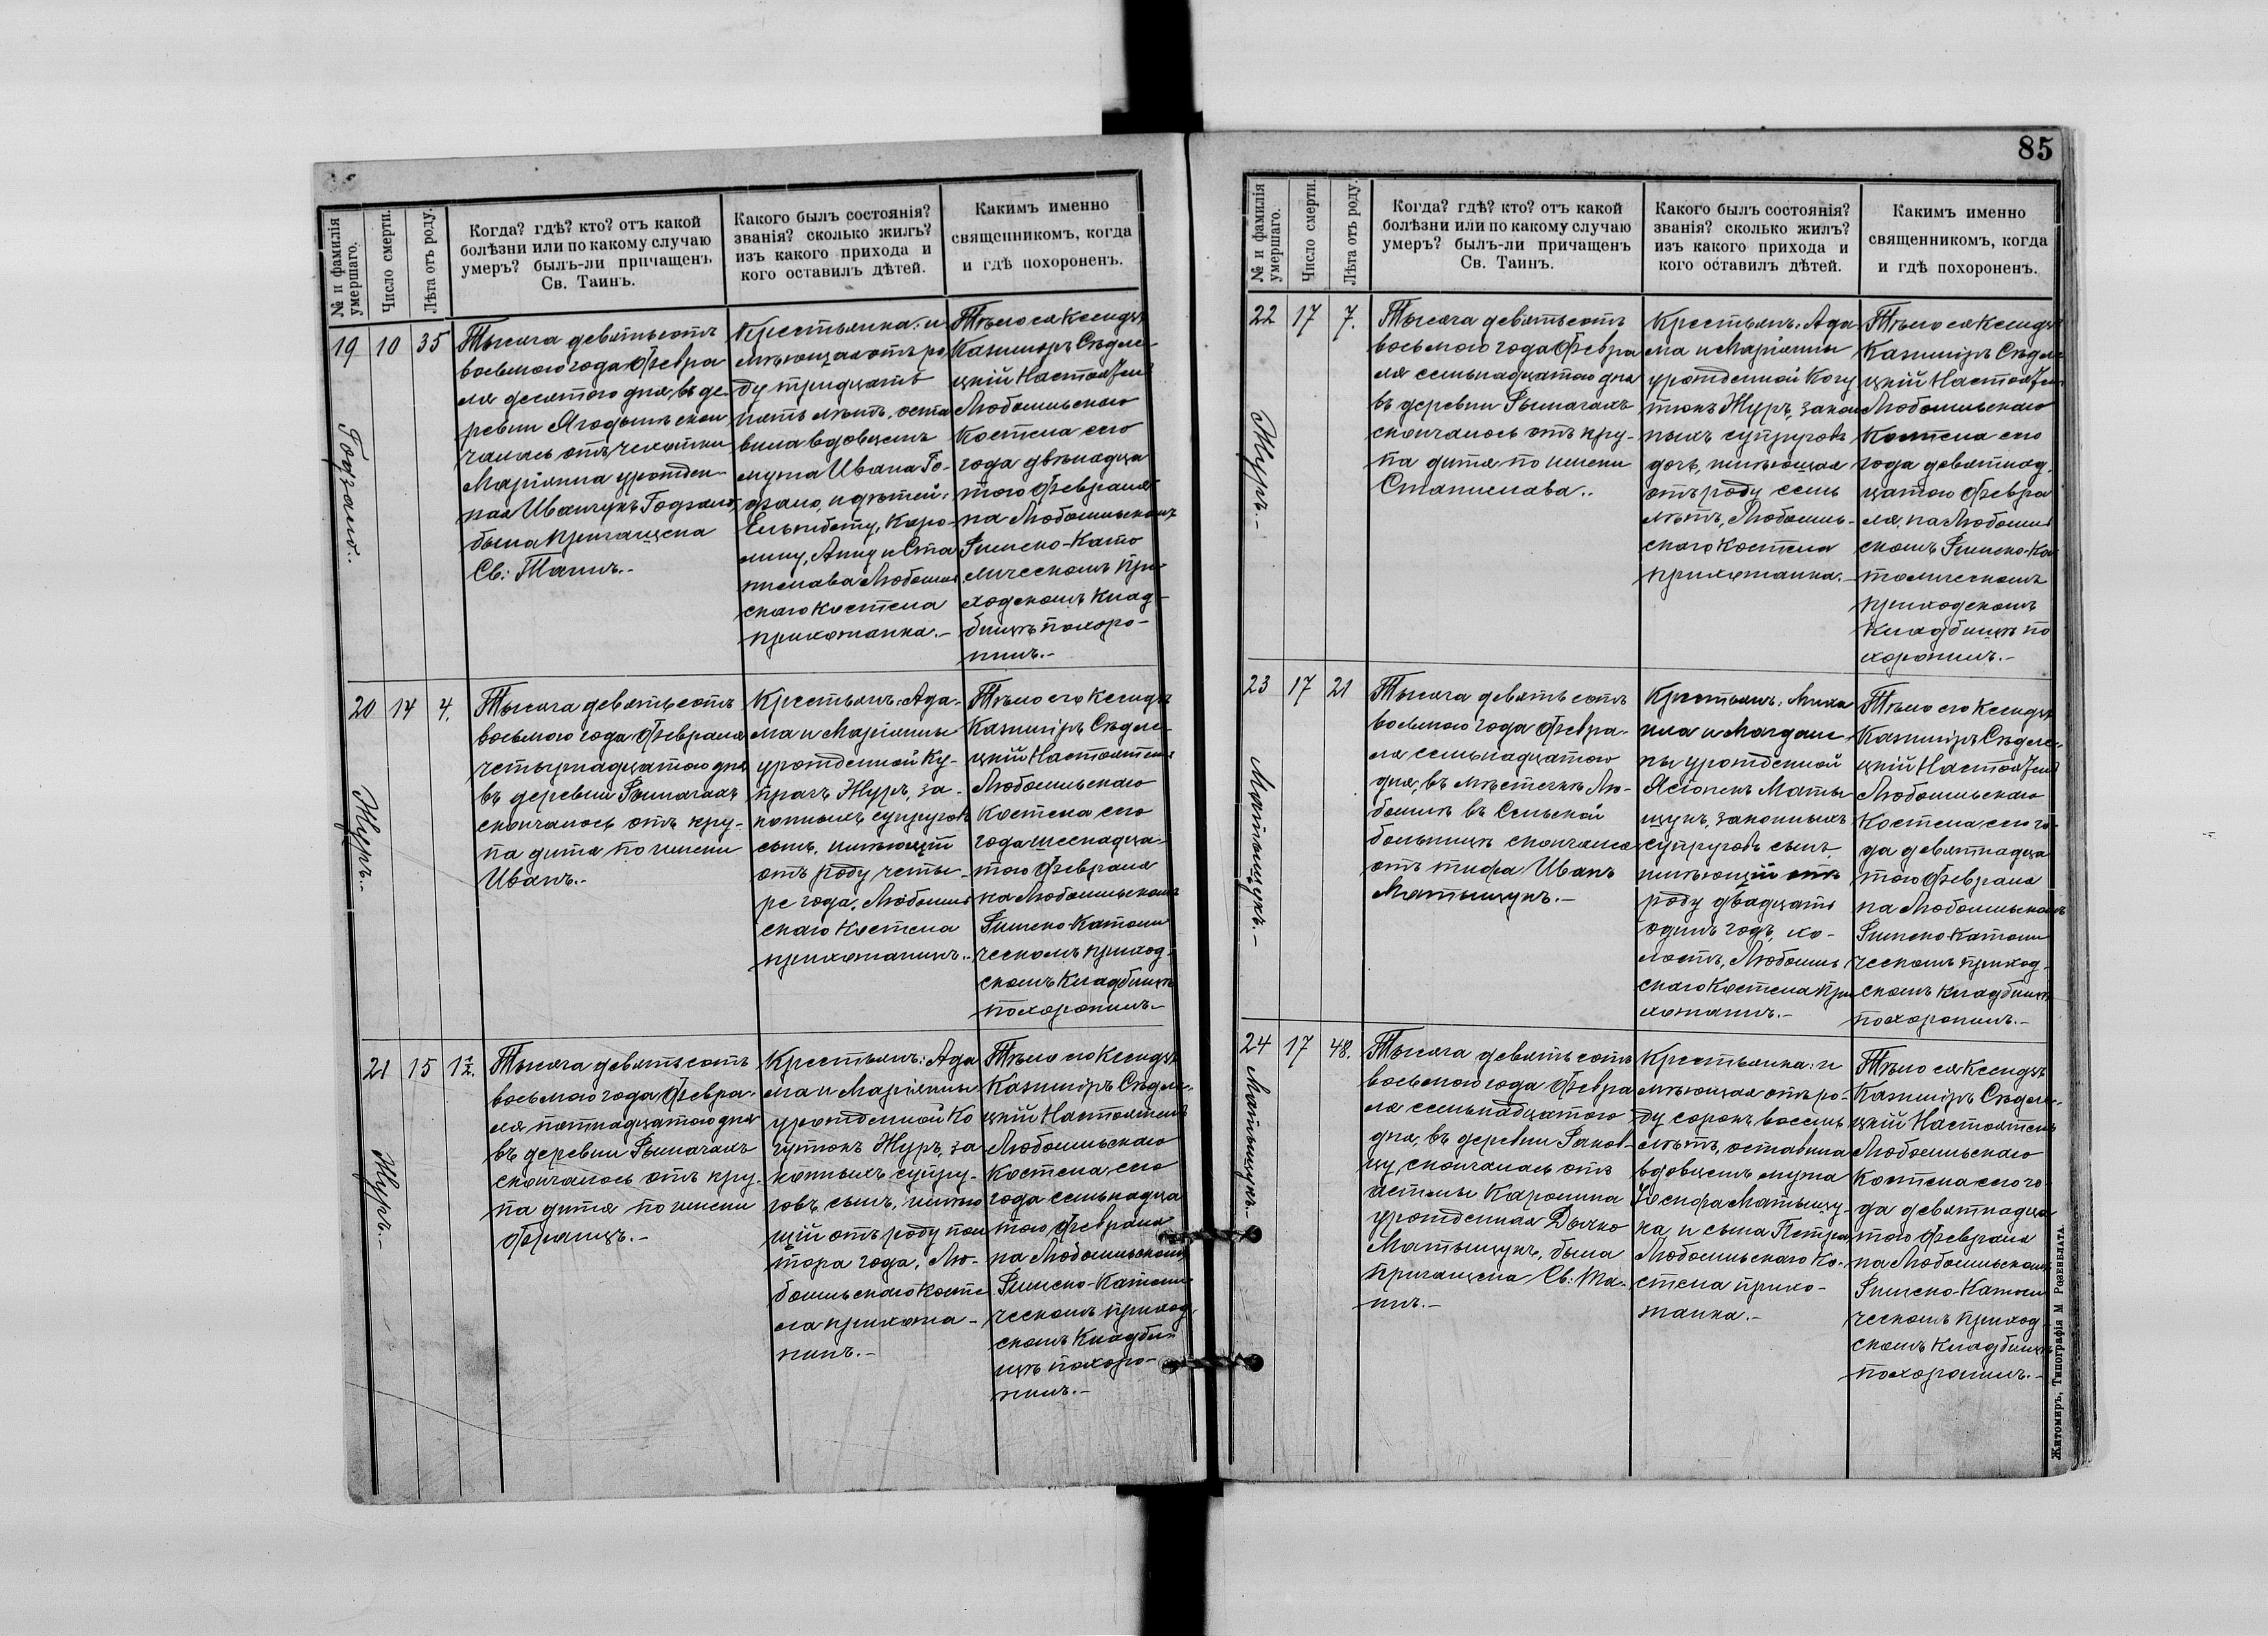 85
№ и фамилія умершаго.
Число смерти.
Лѣта отъ роду.
Когда? гдѣ? кто? отъ какой
болѣзни или по какому случаю
умеръ? былъ-ли причащенъ
Св. Таинъ.
Какого былъ состоянія?
званія? сколько жилъ?
изъ какого прихода и
кого оставилъ дѣтей.
Какимъ именно
священникомъ, когда
и гдѣ похороненъ.
19
10
35
Тысяча девятьсотъ
восьмого года Февра
ля десятого дня, въ де-
ревни Ягодынѣ скон
чалась отъ чехотки
Маріянна урожден-
ная Иванчукъ
была причащена
Св: Таинъ.-
Крестьянка: и
мѣющая отъ ро
ду тридцать
пять лѣтъ, оста
вила вдовцемъ
мужа Ивана Го-
и дѣтей:
Ельжбету, Каро-
лину, Анну и Ста
нислава Любомль
скаго Костела
прихожанка.-
Тѣло ея Ксендзъ
Казиміръ Сѣдле-
цкій Настоятель
Любомльскаго
Костела сего
года двѣнадца
того Февраля
на Любомльскомъ
Римско-Като
лическомъ при
ходскомъ клад-
бищѣ похоро-
нилъ.-
20
14
4.
Журъ.-
Тысяча девятьсотъ
восьмого года Февраля
четырнадцатого дня
въ деревни Рымачахъ
скончалось отъ кру-
па дитя по имени
Иванъ.-
Крестьянъ: Ада-
ма и Маріянны
урожденной Ку-
Журъ, за-
конныхъ супруговъ
сынъ, имѣющій
отъ роду четы-
ре года, Любомль
скаго Костела
прихожанинъ.-
Тѣло его Ксендзъ
Казиміръ Сѣдле-
цкій Настоятель
Любомльскаго
Костела сего
года шеснадца-
того Февраля
на Любомльскомъ
Римско-Католи
ческомъ приход-
скомъ Кладбищѣ
похоронилъ.-
21
15
1½.
Журъ.-
Тысяча девятьсотъ
восьмого года Февра-
ля пятнадцатого дня
въ деревни Рымачахъ
скончалось отъ кру-
па дитя по имени
Францъ.-
Крестьянъ: Ада
ма и Маріянны
урожденной Ко
гутюкъ Журъ, за
конныхъ супру-
говъ сынъ, имѣю
щій отъ роду пол
тора года, Лю-
бомльскаго Косте
ла прихожа-
нинъ.-
Тѣло его Ксендзъ
Казиміръ Сѣдле-
цкій Настоятель
Любомльскаго
Костела, сего
года семьнадца
того Февраля
на Любомльскомъ
Римско-Католи
ческомъ приход
скомъ Кладби-
щѣ похоро-
нилъ.-
№ и фамилія умершаго.
Число смерти.
Лѣта отъ роду.
Когда? гдѣ? кто? отъ какой
болѣзни или по какому случаю
умеръ? былъ-ли причащенъ
Св. Таинъ.
Какого былъ состоянія?
званія? сколько жилъ?
изъ какого прихода и
кого оставилъ дѣтей.
Какимъ именно
священникомъ, когда
и гдѣ похороненъ.
22
17
7.
Журъ.-
Тысяча девятьсотъ
восьмого года Февра
ля семьнадцатого дня
въ деревни Рымачахъ
скончалось отъ кру-
па дитя по имени
Станислава..
Крестьянъ: Ада
ма и Маріянны
урожденной Когу
тюкъ Журъ, закон
ныхъ супруговъ
дочь, имѣющая
отъ роду семь
лѣтъ, Любомль-
скаго Костела
прихожанка.-
Тѣло ея Ксендзъ
Казиміръ Сѣдле
цкій Настоятель
Любомльскаго
Костела сего
года девятнад-
цатого Февра
ля, на Любомль
скомъ Римско-Ка
толическомъ
приходскомъ
Кладбищѣ по
хоронилъ.-
23
17
21
Матыщукъ.-
Тысяча девятьсотъ
восьмого года Февра-
ля семьнадцатого
дня, въ мѣстечкѣ Лю-
бомлѣ въ Сельской
больницѣ скончался
отъ тифа Иванъ
Матыщукъ.-
Крестьянъ: Миха
ила и Магдале-
ны урожденной
Маты
щукъ, законныхъ
супруговъ сынъ,
имѣющій отъ
роду двадцать
одинъ годъ, хо-
лостъ, Любомль
скаго Костела при
хожанинъ.-
Тѣло его Ксендзъ
Казиміръ Сѣдле-
цкій Настоятель
Любомльскаго
Костела сего го-
да девятнадца
того Февраля
на Любомльскомъ
Римско-Католи
ческомъ приход-
скомъ Кладбищѣ
похоронилъ.-
24
17
48.
Матыщукъ.-
Тысяча девятьсотъ
восьмого года Февра
ля семьнадцатого
дня, въ деревни
скончалась отъ
астмы Каролина
урожденная Дычко
Матыщукъ, была
причащена Св: Та-
инъ.-
Крестьянка: и
мѣющая отъ ро-
ду сорокъ восемь
лѣтъ, оставила
вдовцемъ мужа
Іосифа Матыщу-
ка, и сына Петра,
Любомльскаго Ко-
стела прихо-
жанка.-
Тѣло ея Ксендзъ
Казиміръ Сѣдле-
цкій Настоятель
Любомльскаго
Костела сего го-
да девятнадца
того Февраля
на Любомльскомъ
Римско-Католи
ческомъ приход
скомъ Кладбищѣ
похоронилъ.-
Житомиръ, Типографія М Розенблата